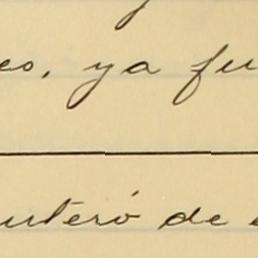 es, ya fu
uteró de